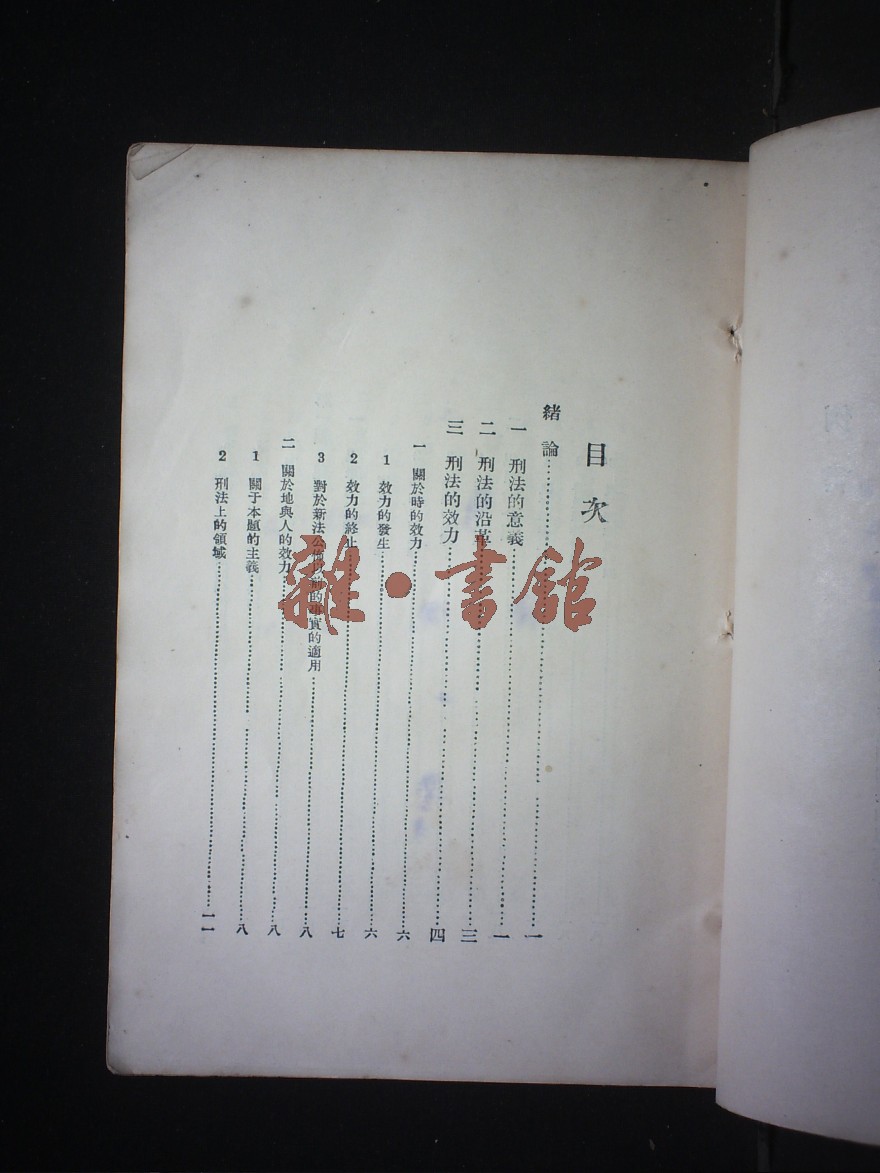 目次
緒論……一
一 刑法的意義……一
二 刑法的沿革……三
三 刑法的效力……四
一 關於時的效力……六
1 效力的發生……六
2 效力的終止……七
3 對於新法公佈以前的事實的適用……八
二 關於地與人的效力……八
1 關于本題的主義……八
2 刑法上的領域……一一
雜·書館